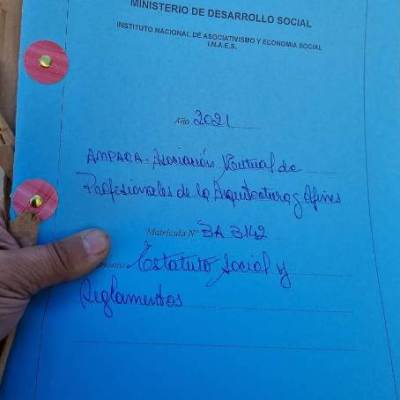 MINISTERIO DE DESARROLLO SOCIAL
INSTITUTO NACIONAL DE ASOCIATIVISMO Y ECONOMIA SOCIAL
I.N.A.E.S.
Año 2021
AMPACA - Asociación Mutual de
Profesionales de la Arquitectura y Afines
Matrícula Nº BA 3142
Estatuto Social y
Reglamentos